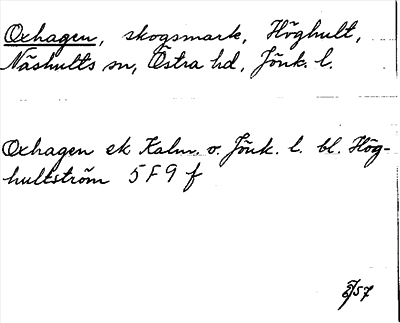 Oxhagen, skogsmark, Höghult,
Näshults sn, Östra hd, Jönk. l.
Oxhagen ek Kalm. o. Jönk. l. bl. Hög-
hultström 5F9f
/57